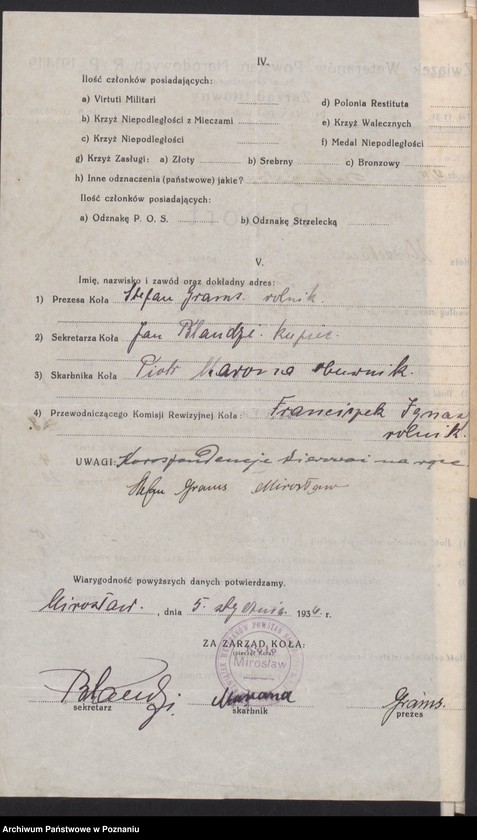 IV.
Ilość członków posiadających:
a) Virtuti Militari
d) Polonia Restituta
b) Krzyż Niepodległości z Mieczami
e) Krzyż Walecznych
c) Krzyż Niepodległości
f) Medal Niepodległości
g) Krzyż Zasługi: a) Złoty b) Srebrny c) Bronzowy
h) Inne odznaczenia (państwowe) jakie?
Ilość członków posiadających:
a) Odznakę P. O. S. b) Odznakę Strzelecką
V.
Imię, nazwisko i zawód oraz dokładny adres:
1) Prezesa Koła Stefan Grams. rolnik.
2) Sekretarza Koła Jan Blandzi. kupiec.
3) Skarbnika Koła Piotr
4) Przewodniczącego Komisji Rewizyjnej Koła: Franciszek Ignas
rolnik.
UWAGI: Korespondencje na ręce
Stefan Grams Mirosław
Wiarygodność powyższych danych potwierdzamy.
Mirosław. , dnia 5. stycznia 1934. r.
ZA ZARZĄD KOŁA:
(pieczęć Koła)
Koło
Mirosław
Blandzi.
sekretarz
skarbnik
Grams.
prezes
Archiwum Państwowe w Poznaniu